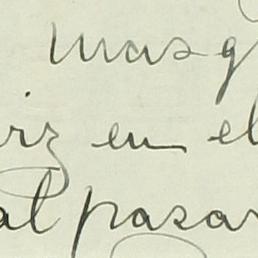 mas g
riz en el
al pasar